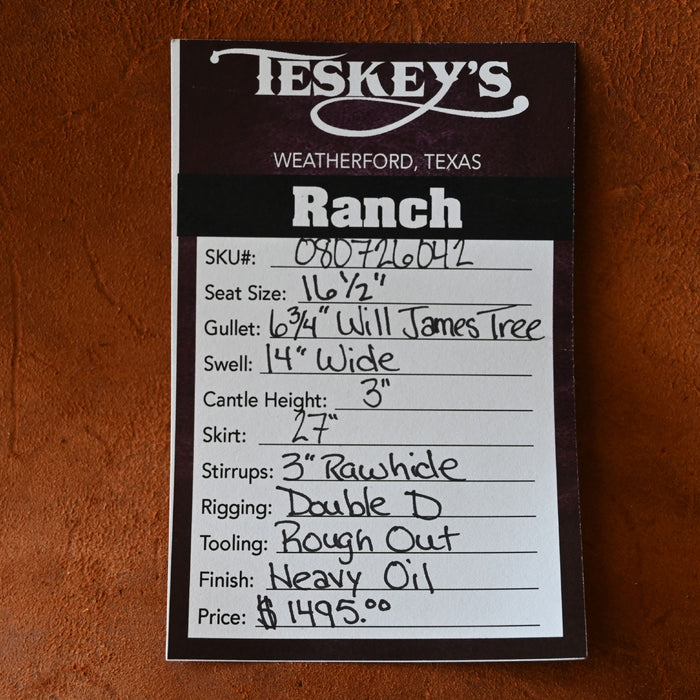 TESKEY'S
WEATHERFORD, TEXAS
Ranch
SKU#: 080726042
Seat Size: 16 1/2"
Gullet: 6 3/4" Will James Tree
Swell: 14" Wide
Cantle Height: 3"
Skirt: 27"
Stirrups: 3" Rawhide
Rigging: Double D
Tooling: Rough Out
Finish: Heavy Oil
Price: $ 1495.00